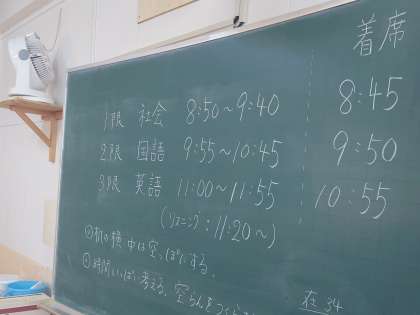 着席
1限 社会 8:50～9:40 8:45
2限 国語 9:55～10:45 9:50
3限 英語 11:00～11:55 10:55
(リスニング:11:20～)
机の横中は空っぽにする。
時間いっぱい考える。空らんを
在 34